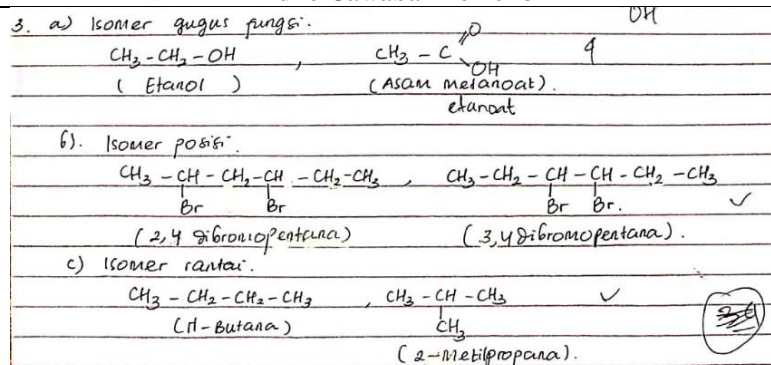 3. a) Isomer gugus fungsi.
OH
CH3 - CH2 - OH , CH3 - C O OH
4
( Etanol ) (Asam metanoat).
etanoat
b). Isomer posisi.
CH3 - CH - CH2 - CH - CH2 - CH3 , CH3 - CH2 - CH - CH - CH2 - CH3
Br Br Br Br. ✓
(2,4 dibromopentana) (3,4 dibromopentana).
c) Isomer rantai.
CH3 - CH2 - CH2 - CH3 , CH3 - CH - CH3 ✓
(n-Butana) CH3
(2-metilpropana).